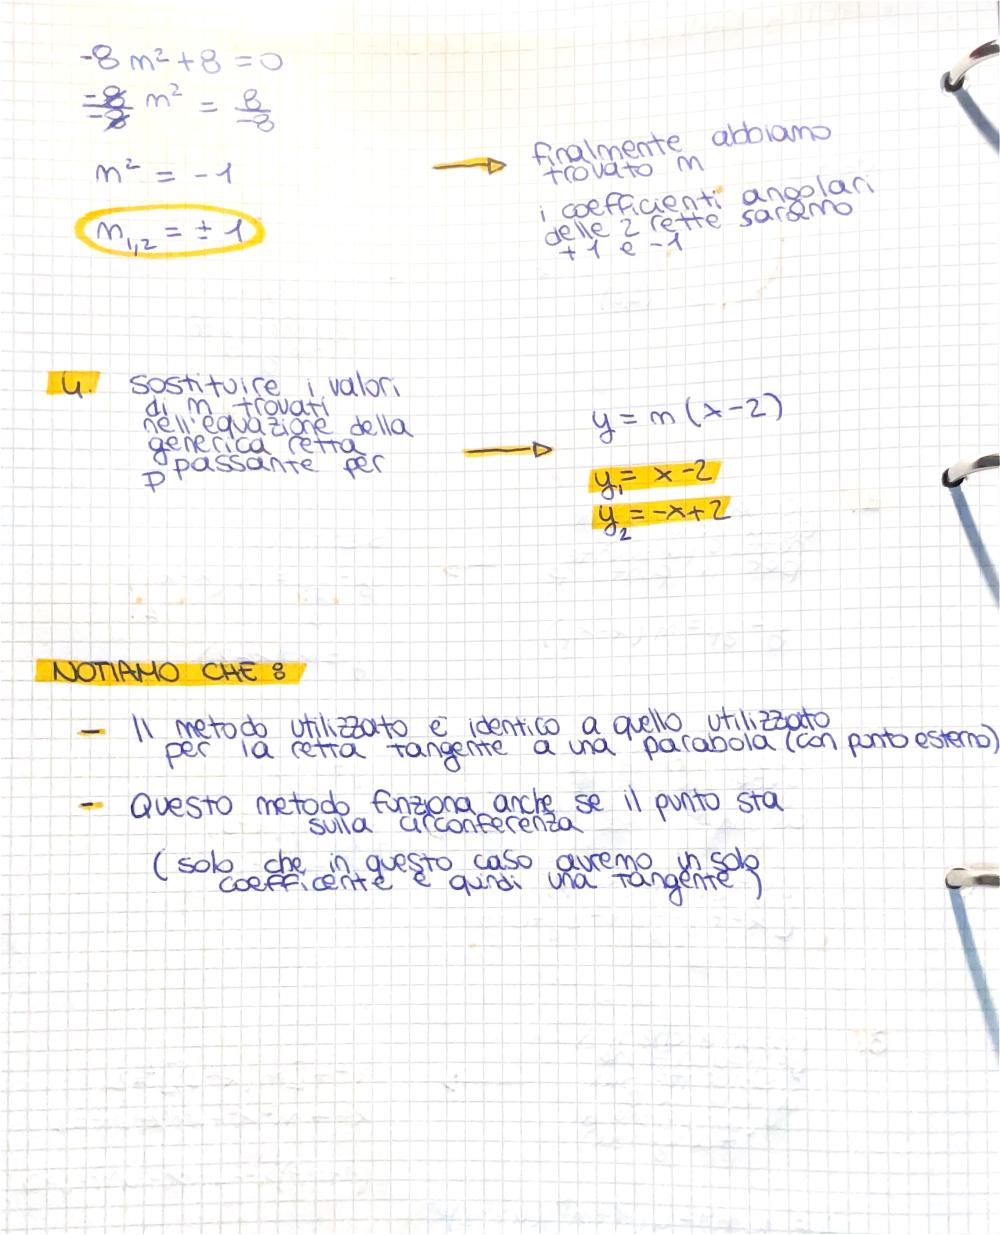 -8 m² + 8 = 0
-8/-8 m² = 8/-8
m² = -1
m1,2 = ± 1
finalmente abbiamo
trovato m
i coefficienti angolari
delle 2 rette saranno
+ 1 e -1
4. sostituire i valori
di m trovati
nell'equazione della
generica retta
passante per
P
y = m (x-2)
y1 = x-2
y2 = -x+2
NOTIAMO CHE :
- Il metodo utilizzato è identico a quello utilizzato
per la retta tangente a una parabola (con punto esterno)
- Questo metodo funziona anche se il punto sta
sulla circonferenza
(solo che in questo caso avremo un solo
coefficente e quindi una tangente)